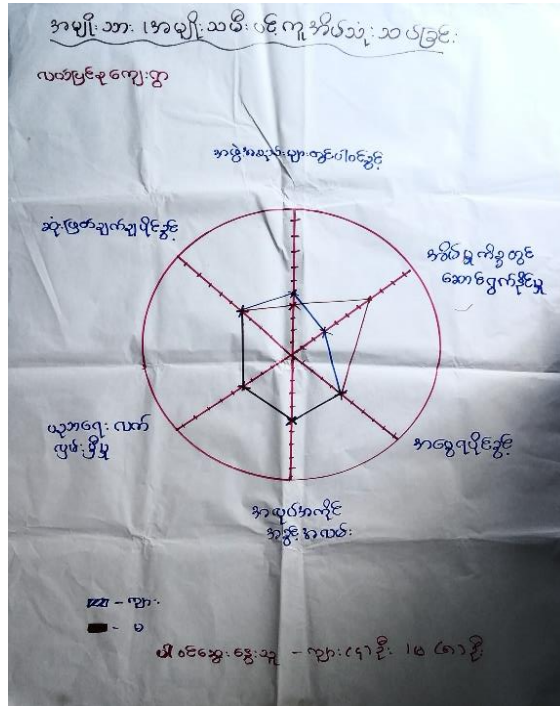 အမျိုးသား၊အမျိုးသမီး ပင့်ကူအိမ်သုံးသပ်ခြင်း
လယ်ပြင်စုကျေးရွာ
အဖွဲ့အစည်းများတွင်ပါဝင်ခွင့်
ဆုံးဖြတ်ချက်ချပိုင်ခွင့်
အိမ်မှုကိစ္စတွင်
ဆောင်ရွက်နိုင်မှု
ယူဘရေးလက်
လှမ်းမှီမှု
အမွေရပိုင်ခွင့်
အလုပ်အကိုင်
အခွင့်အလမ်း
- ကျား
- မ
ပါဝင်ဆွေးနွေးသူ - ကျား(၄)ဦး ၊မ (၈)ဦး